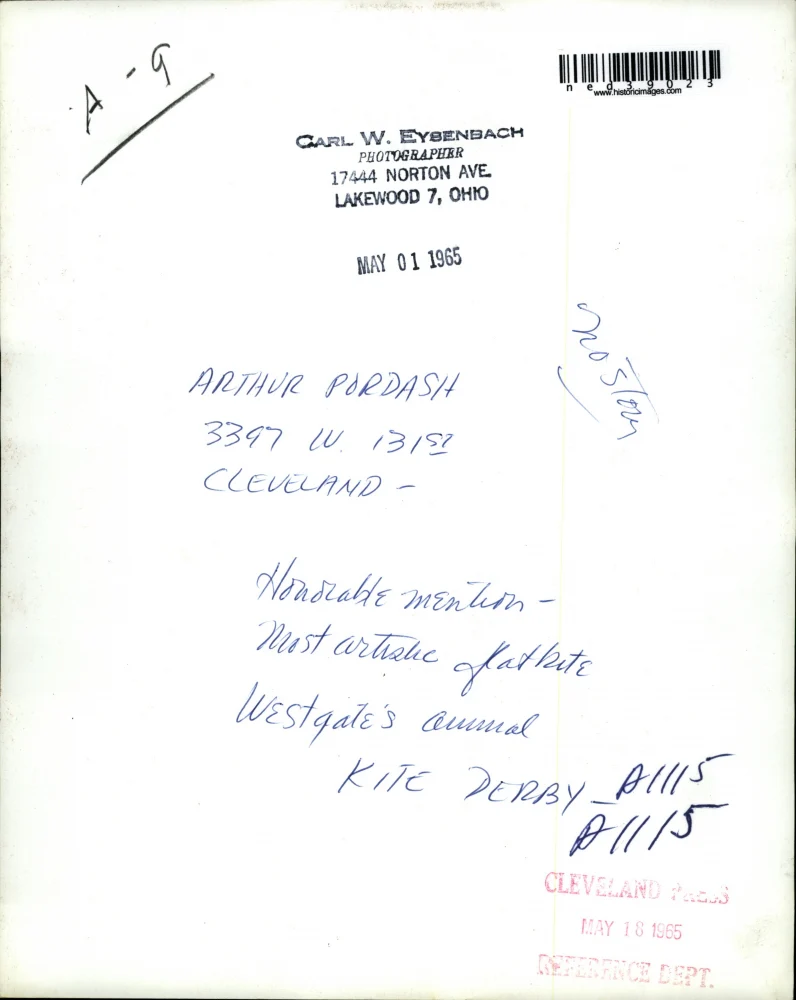 A-9
ned39023
www.historicimages.com
CARL W. EYSENBACH
PHOTOGRAPHER
17444 NORTON AVE.
LAKEWOOD 7, OHIO
MAY 01 1965
no story
ARTHUR PORDASH
3397 W. 131ST
CLEVELAND -
Honorable mention -
Most artistic flat kite
Westgate's annual
KITE DERBY - A1115
A1115
CLEVELAND PRESS
MAY 18 1965
REFERENCE DEPT.